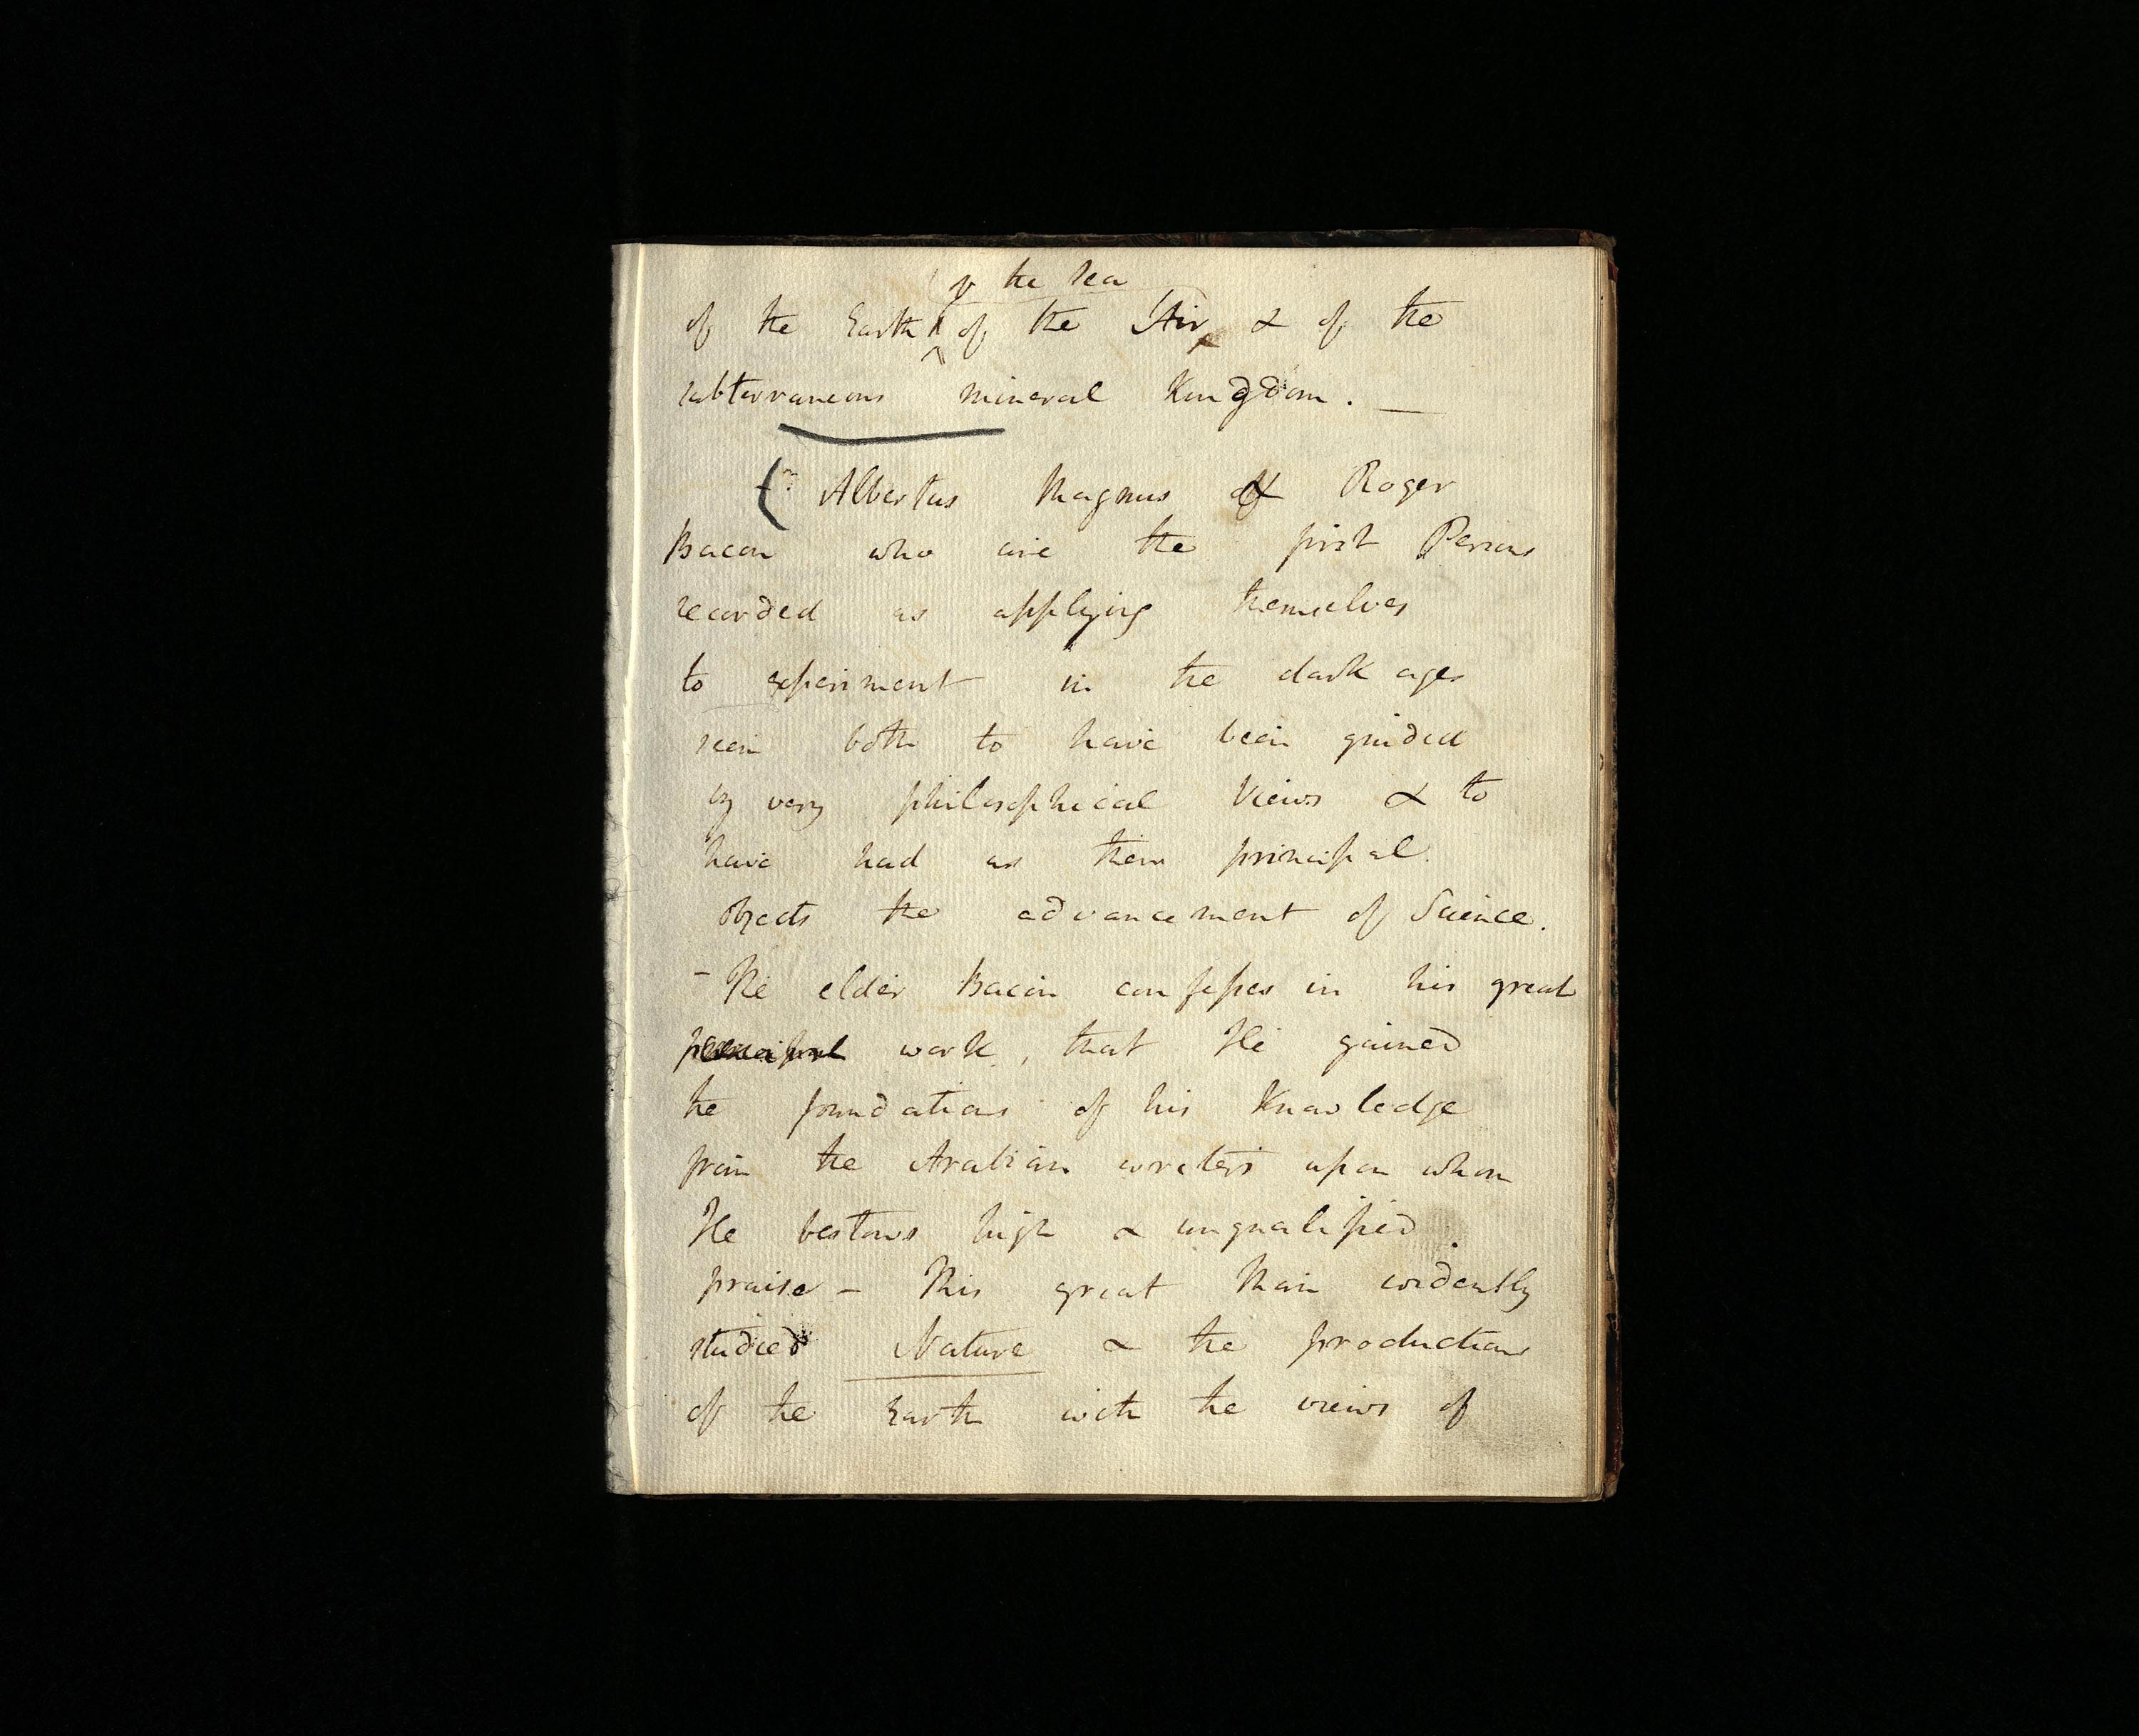 of the sea
of the Earth of the Air & of the
subterraneous mineral Kingdom. _
- Albertus Magnus & Roger
Bacon who are the first Persons
recorded as applying themselves
to experiment in the dark ages
seem both to have been guided
by very philosophical views & to
have had as their principal
objects the advancement of Science.
- The elder Bacon confesses in his great
principal work, that He gained
the foundations of his Knowledge
from the Arabian writers upon whom
He bestows high & unqualified
praise - This great Man evidently
studied Nature & the productions
of the Earth with the views of